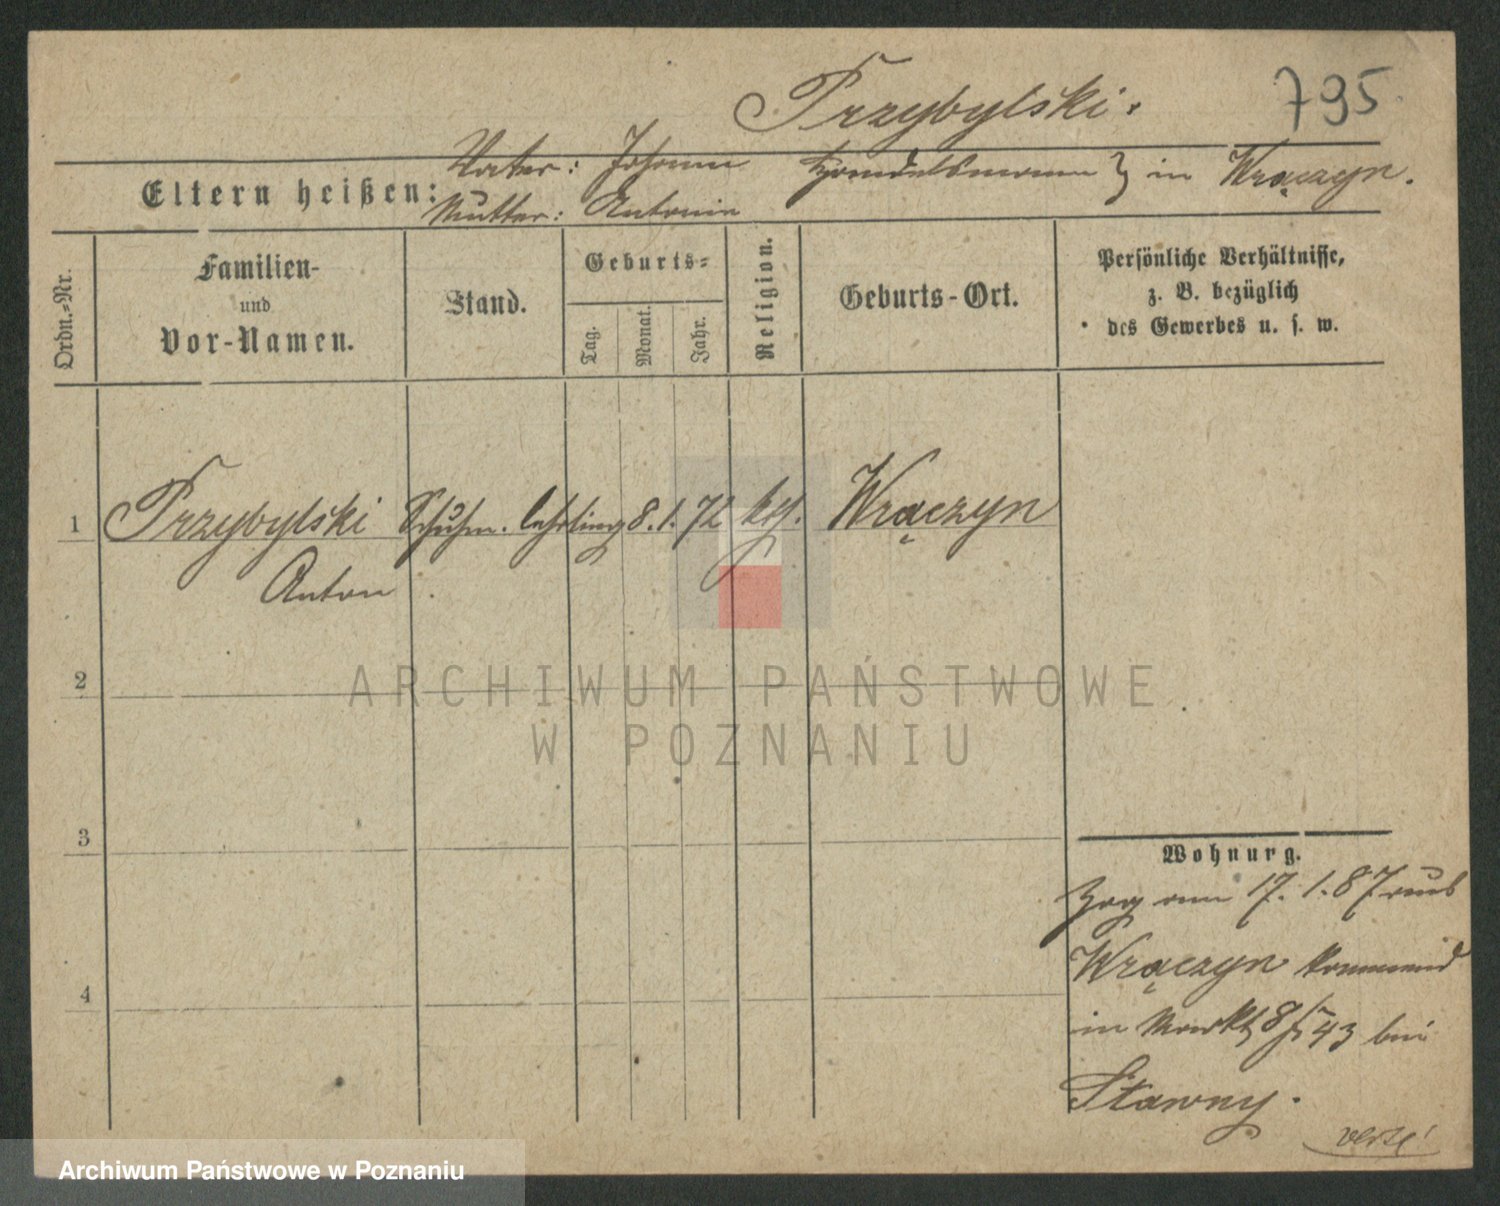 Przybylski.
795
Eltern heißen:
Vater: Johann Handelsmann } in Wrączyn.
Mutter: Antonie
Ordn.=Nr.
Familien-
und
Vor-Namen.
Stand.
Geburts=
Tag.
Monat.
Jahr.
Religion.
Geburts-Ort.
Persönliche Verhältnisse,
z. B. bezüglich
des Gewerbes u. s. w.
1 Przybylski Schuhm. lehrling 8. 1. 72 kth. Wrączyn
Anton
2
3
4
Wohnung.
Zog am 17. 1. 87 aus
Wrączyn kommend
in Markt 43 bei
Sławny.
verte!
ARCHIWUM PAŃSTWOWE
W POZNANIU
Archiwum Państwowe w Poznaniu